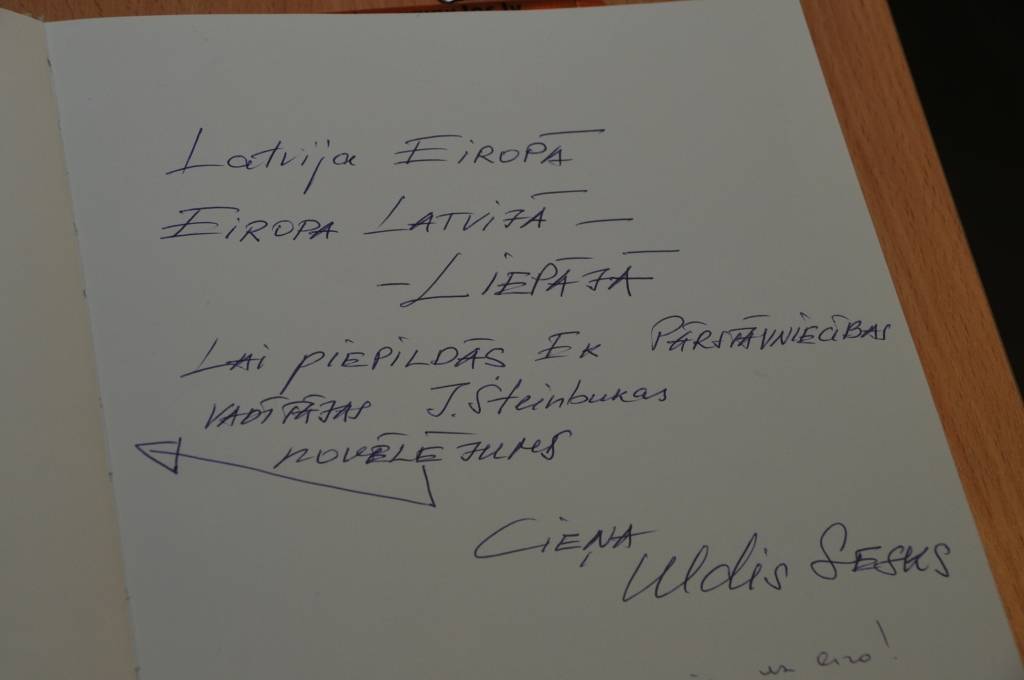 Latvija EIROPĀ
EIROPA LATVIJĀ —
– LIEPĀJĀ
LAI PIEPILDĀS EK PĀRSTĀVNIECĪBAS
VADĪTĀJAS J.Šteinbukas
NOVĒLĒJUMS
CIEŅĀ
Uldis SESKS
uz eiro!